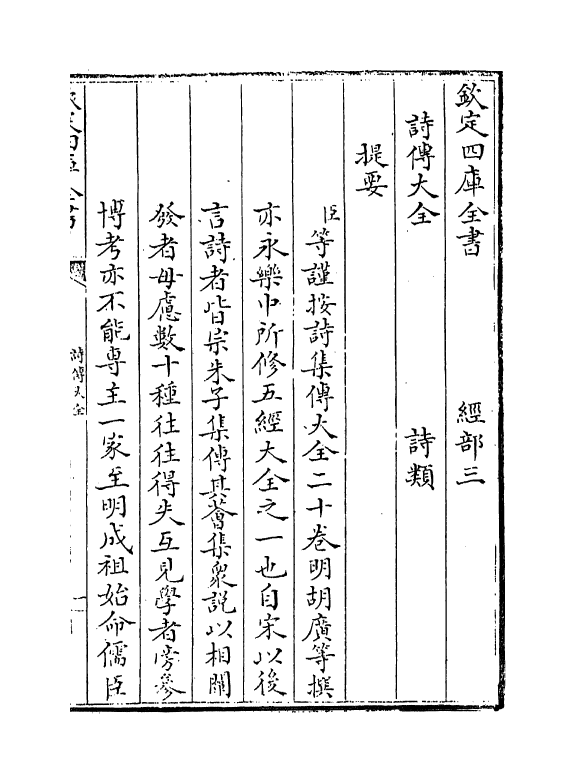 欽定四庫全書 經部三
詩傳大全 詩類
提要
臣等謹按詩集傳大全二十卷明胡廣等撰
亦永樂中所修五經大全之一也自宋以後
言詩者皆宗朱子集傳其薈集衆說以相闡
發者毋慮數十種往往得失互見學者旁參
博考亦不能專主一家至明成祖始命儒臣
欽定四庫全書
詩傳大全
一